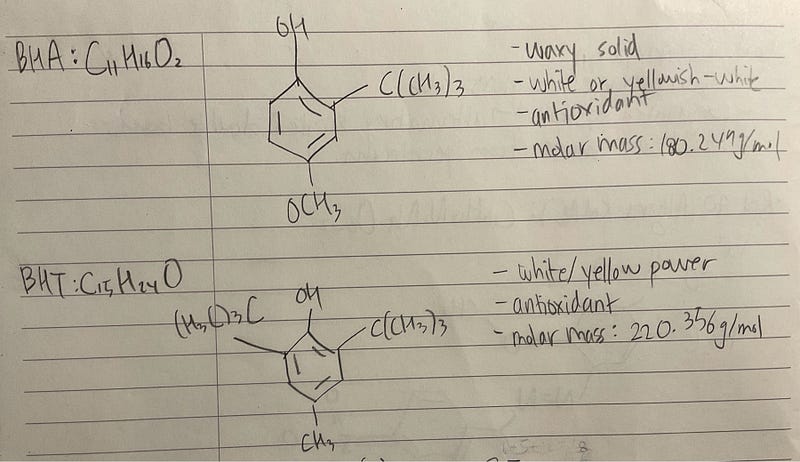 OH
BHA: C11H16O2
C(CH3)3
OCH3
- waxy solid
- white or yellowish-white
- antioxidant
- molar mass: 180.247g/mol
BHT: C15H24O
OH
(H3C)3C
C(CH3)3
CH3
- white/yellow power
- antioxidant
- molar mass: 220.356g/mol